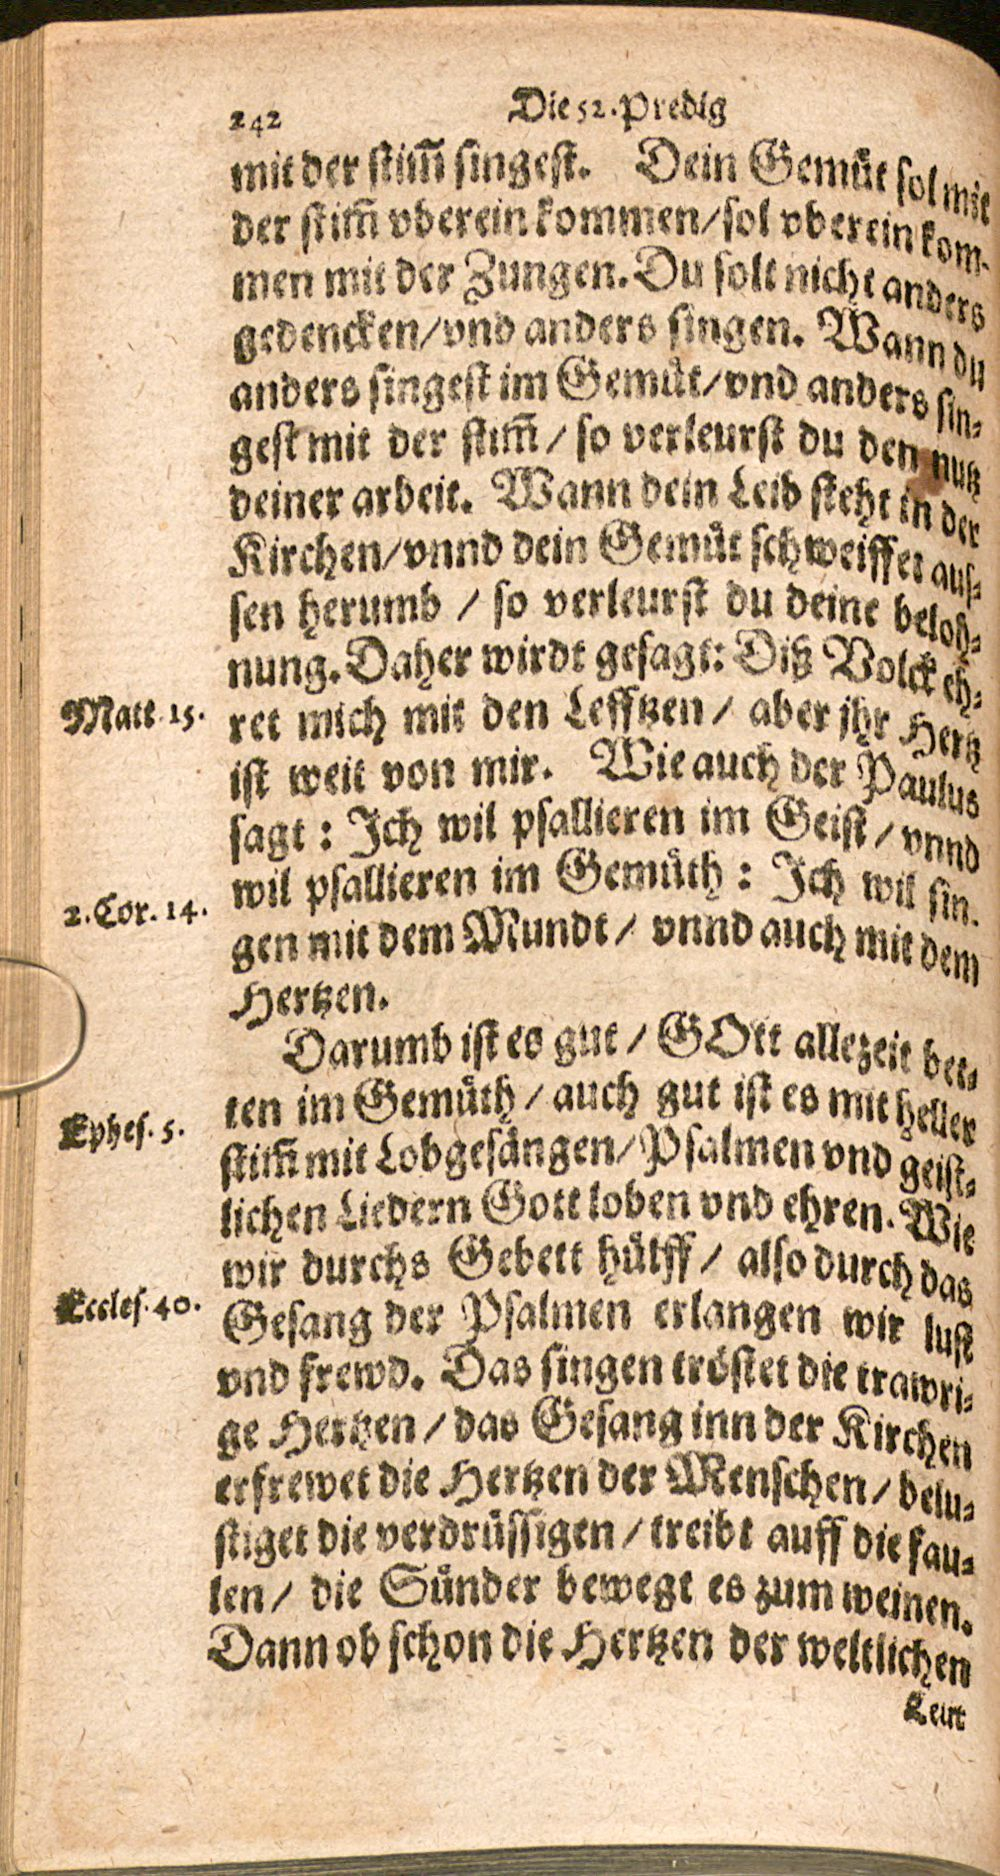 242 Die 52. Predig
mit der stim̃ singest. Dein Gemüt sol mit
der stim̃ vberein kommen/ sol vberein kom-
men mit der Zungen. Du solt nicht anders
gedencken/ vnd anders singen. Wann du
anders singest im Gemüt/ vnd anders sin-
gest mit der stim̃ / so verleurst du den nutz
deiner arbeit. Wann dein Leib steht in der
Kirchen/ vnnd dein Gemüt schweiffet aus-
sen herumb / so verleurst du deine beloh-
nung. Daher wirdt gesagt: Diß Volck eh-
Matt. 15. ret mich mit den Lefftzen / aber jhr Hertz
ist weit von mir. Wie auch der Paulus
sagt : Ich wil psallieren im Geist / vnnd
2. Cor. 14. wil psallieren im Gemüth : Ich wil sin-
gen mit dem Mundt / vnnd auch mit dem
Hertzen.
Darumb ist es gut / GOtt allezeit bet-
Ephes. 5. ten im Gemüth / auch gut ist es mit heller
stim̃ mit Lobgesängen/ Psalmen vnd geist-
lichen Liedern Gott loben vnd ehren. Wie
wir durchs Gebett hülff / also durch das
Eccles. 40. Gesang der Psalmen erlangen wir lust
vnd frewd. Das singen tröstet die trawri-
ge Hertzen / das Gesang inn der Kirchen
erfrewet die Hertzen der Menschen / belu-
stiget die verdrüssigen / treibt auff die fau-
len / die Sünder bewegt es zum weinen.
Dann ob schon die Hertzen der weltlichen
Leut